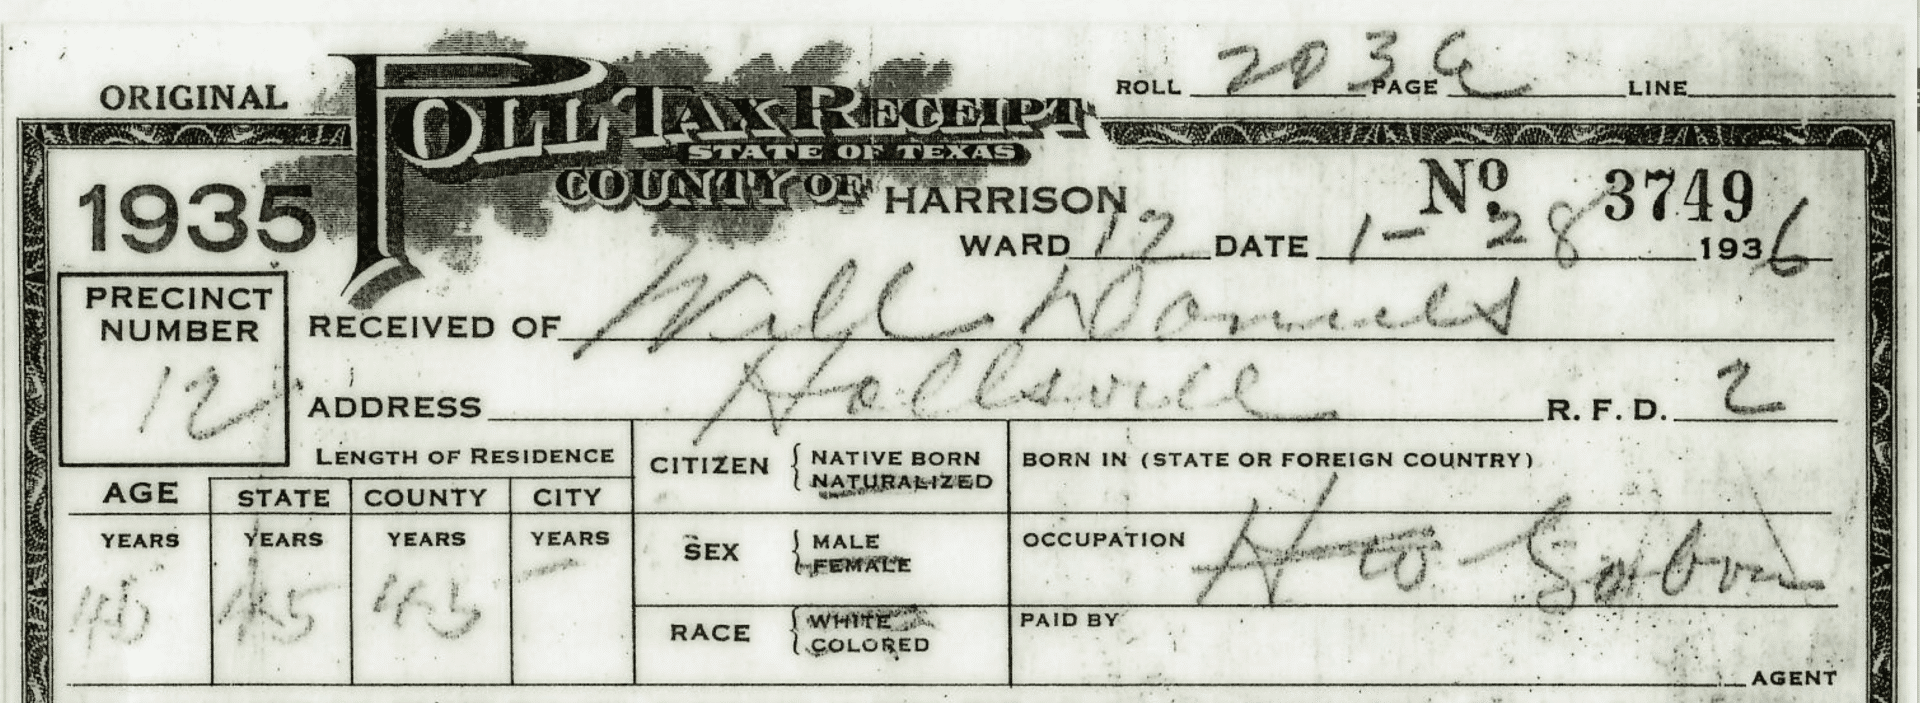 ORIGINAL
POLL TAX RECEIPT
ROLL 203 PAGE LINE
STATE OF TEXAS
COUNTY OF HARRISON
1935
No. 3749
WARD 12 DATE 1-28 1936
PRECINCT NUMBER
12
RECEIVED OF Will Daniels
ADDRESS Hallsvill R. F. D. 2
LENGTH OF RESIDENCE
AGE STATE COUNTY CITY
YEARS YEARS YEARS YEARS
45 45 45 —
CITIZEN { NATIVE BORN
NATURALIZED
BORN IN (STATE OR FOREIGN COUNTRY)
SEX { MALE
FEMALE
OCCUPATION
RACE { WHITE
COLORED
PAID BY
AGENT